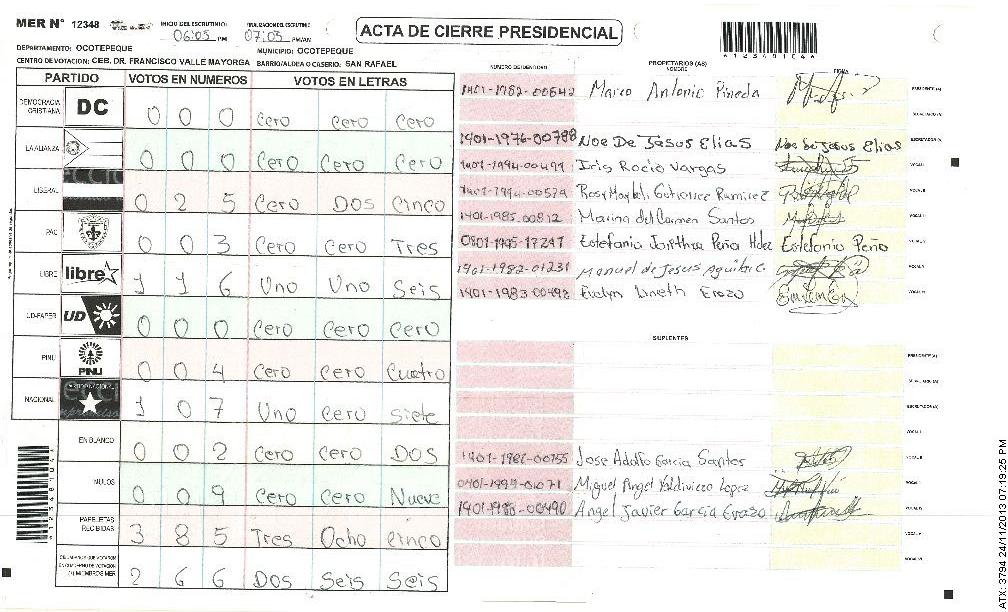 MER N° 12348
INICIO DEL ESCRUTINIO: 06:05 PM
FINALIZACION DEL ESCRUTINIO 07:05 PM/AM
ACTA DE CIERRE PRESIDENCIAL
A123481046
DEPARTAMENTO: OCOTEPEQUE
MUNICIPIO: OCOTEPEQUE
CENTRO DE VOTACION: CEB. DR. FRANCISCO VALLE MAYORGA BARRIO/ALDEA O CASERIO: SAN RAFAEL
PARTIDO VOTOS EN NUMEROS VOTOS EN LETRAS
DEMOCRACIA CRISTIANA DC 0 0 0 Cero Cero Cero
LA ALIANZA 0 0 0 Cero Cero Cero
LIBERAL 0 2 5 Cero Dos Cinco
PAC 0 0 3 Cero Cero Tres
LIBRE libre 1 1 6 Uno Uno Seis
UD-FAPER UD 0 0 0 Cero Cero Cero
PINU PINU 0 0 4 Cero Cero Cuatro
NACIONAL 1 0 7 Uno Cero Siete
EN BLANCO 0 0 2 Cero Cero Dos
NULOS 0 0 9 Cero Cero Nueve
PAPELETAS RECIBIDAS 3 8 5 Tres Ocho Cinco
(+) MIEMBROS MER 2 6 6 Dos Seis Seis
NUMERO DE IDENTIDAD PROPIETARIOS (AS) NOMBRE FIRMA
1401-1982-00642 Marco Antonio Pineda PRESIDENTE (A)
SECRETARIO (A)
1401-1976-00788 Noe De Jesus Elias Noe De Jesus Elias ESCRUTADOR (A)
1401-1994-00499 Iris Rocio Vargas VOCAL I
1401-1994-00579 Rosy Maybeli Gutierrez Ramirez VOCAL II
1401-1985-00812 Marina del Carmen Santos
0801-1995-17247 Estefania Peña Hdez Estefania Peña
1401-1982-01231 Manuel de Jesus
1401-1983-00498 Evelyn Lineth Erazo
SUPLENTES
PRESIDENTE (A)
SECRETARIO (A)
ESCRUTADOR (A)
VOCAL I
1401-1986-00755 Jose Adolfo Garcia Santos VOCAL II
0401-1999-01071 Miguel Angel Valdiviezo Lopez
1401-1988-00490 Angel Javier Garcia Erazo
VOCAL V
VOCAL VI
ATX: 3794 24/11/2013 07:19:25 PM